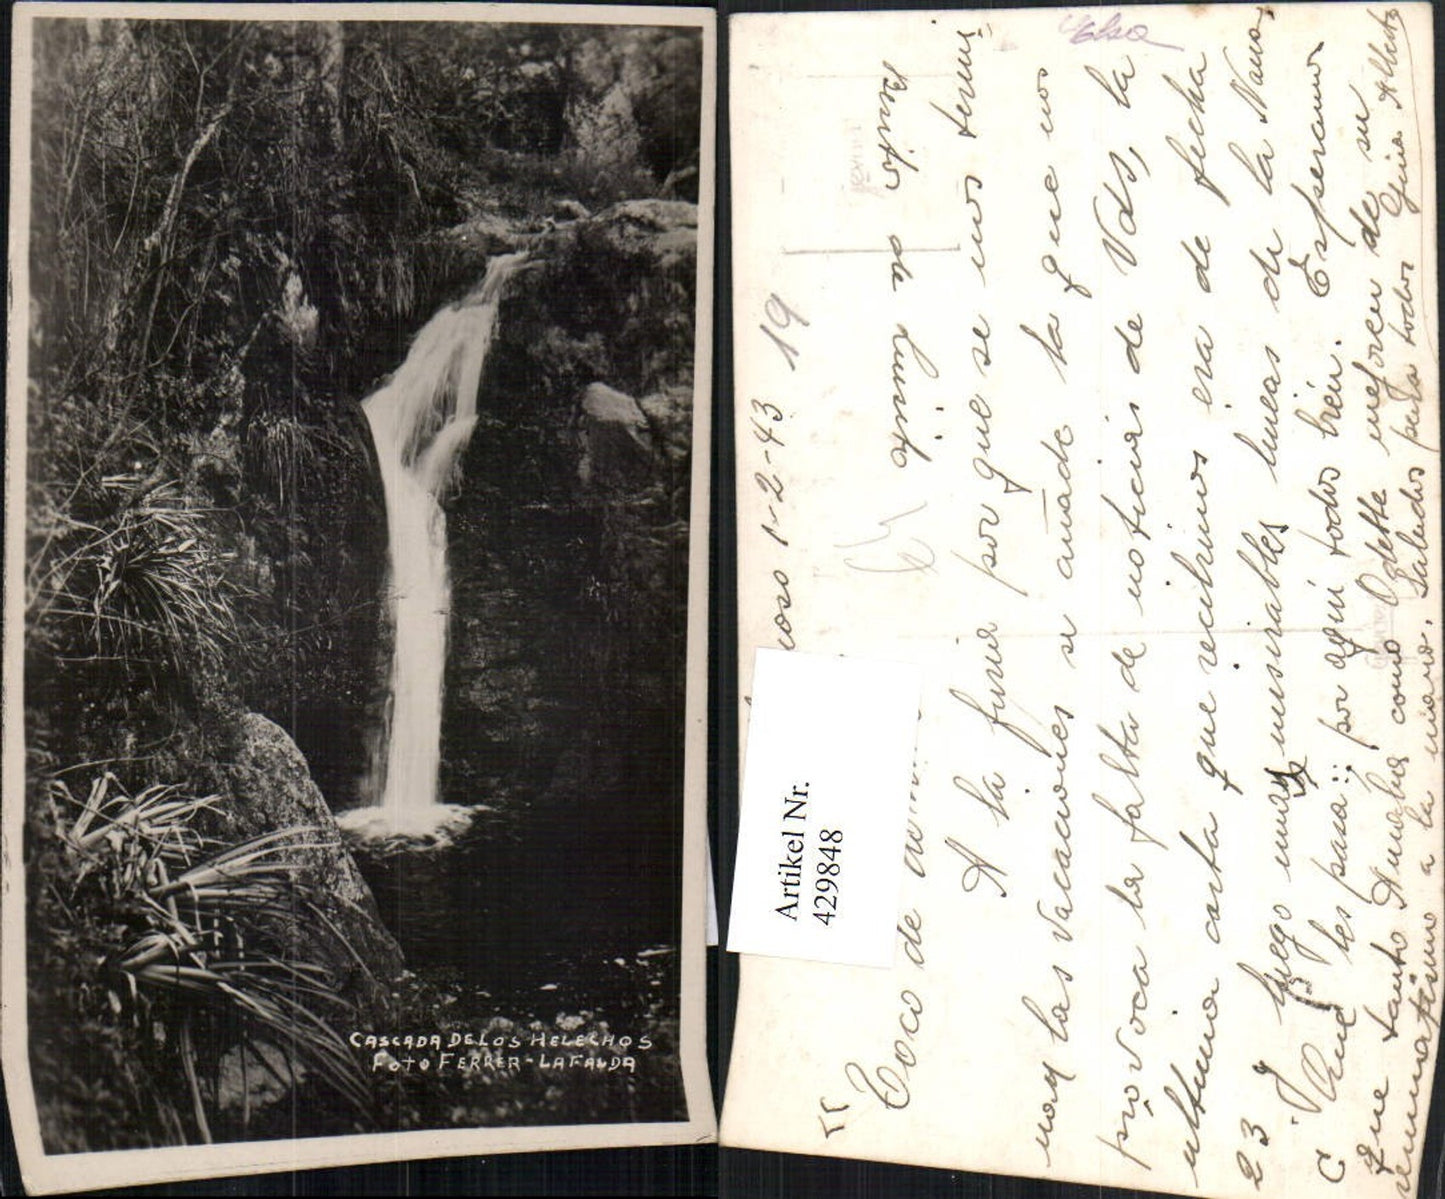 CASCADA DE LOS HELECHOS
FOTO FERRER-LA FALDA
Artikel Nr.
429848
1-2-43 19
Coco de
A la furia por que se nos termi
nan las vacaciones se añade la que nos
provoca la falta de noticias de Vds, la
ultima carta que recibimos era de fecha
23 y luego unas miserables lineas de la Nana,
¿Que les pasa?; por aquí todos bien. Esperamos
que tanto Amalia como Odette mejoren de su
reumatismo a la mano. Saludos para todos